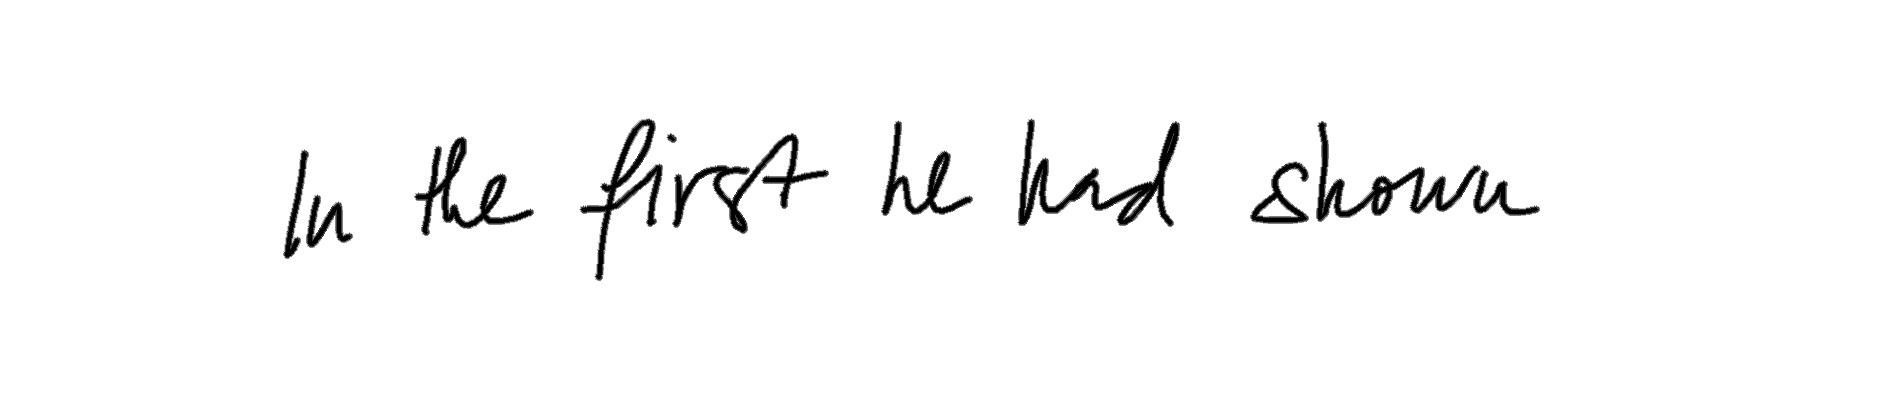 In the first he had shown